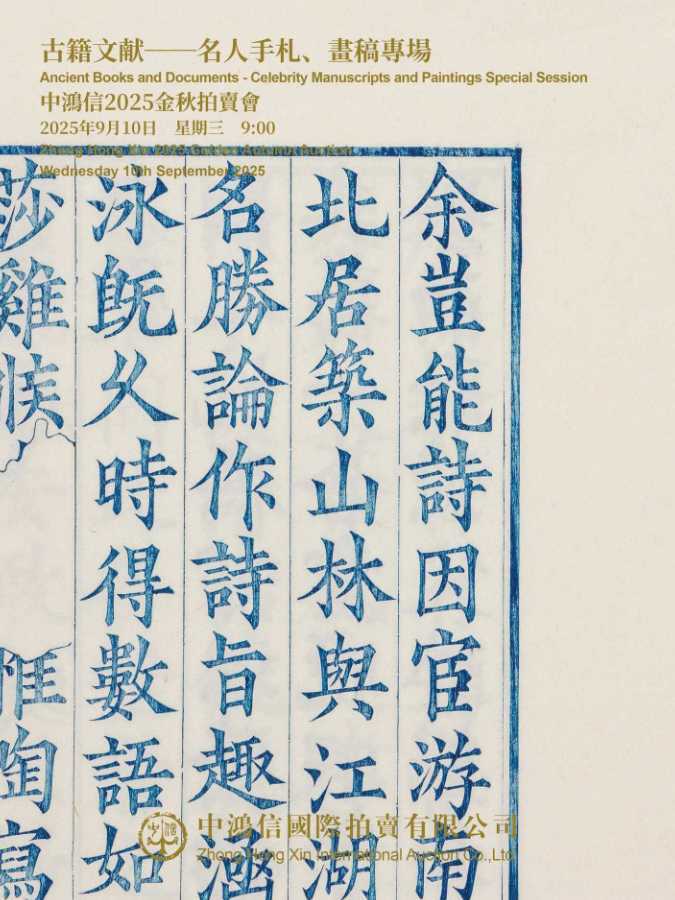 古籍文献——名人手札、畫稿專場
Ancient Books and Documents - Celebrity Manuscripts and Paintings Special Session
中鴻信2025金秋拍賣會
2025年9月10日 星期三 9:00
Zhong Hong Xin 2025 Golden Autumn Auction
Wednesday 10th September 2025
余豈能詩因宦游南
北居築山林與江湖
名勝論作詩旨趣涵
泳既乆時得數語如
莎雞
惟陶寫
中鴻信國際拍賣有限公司
Zhong Hong Xin International Auction Co.,Ltd